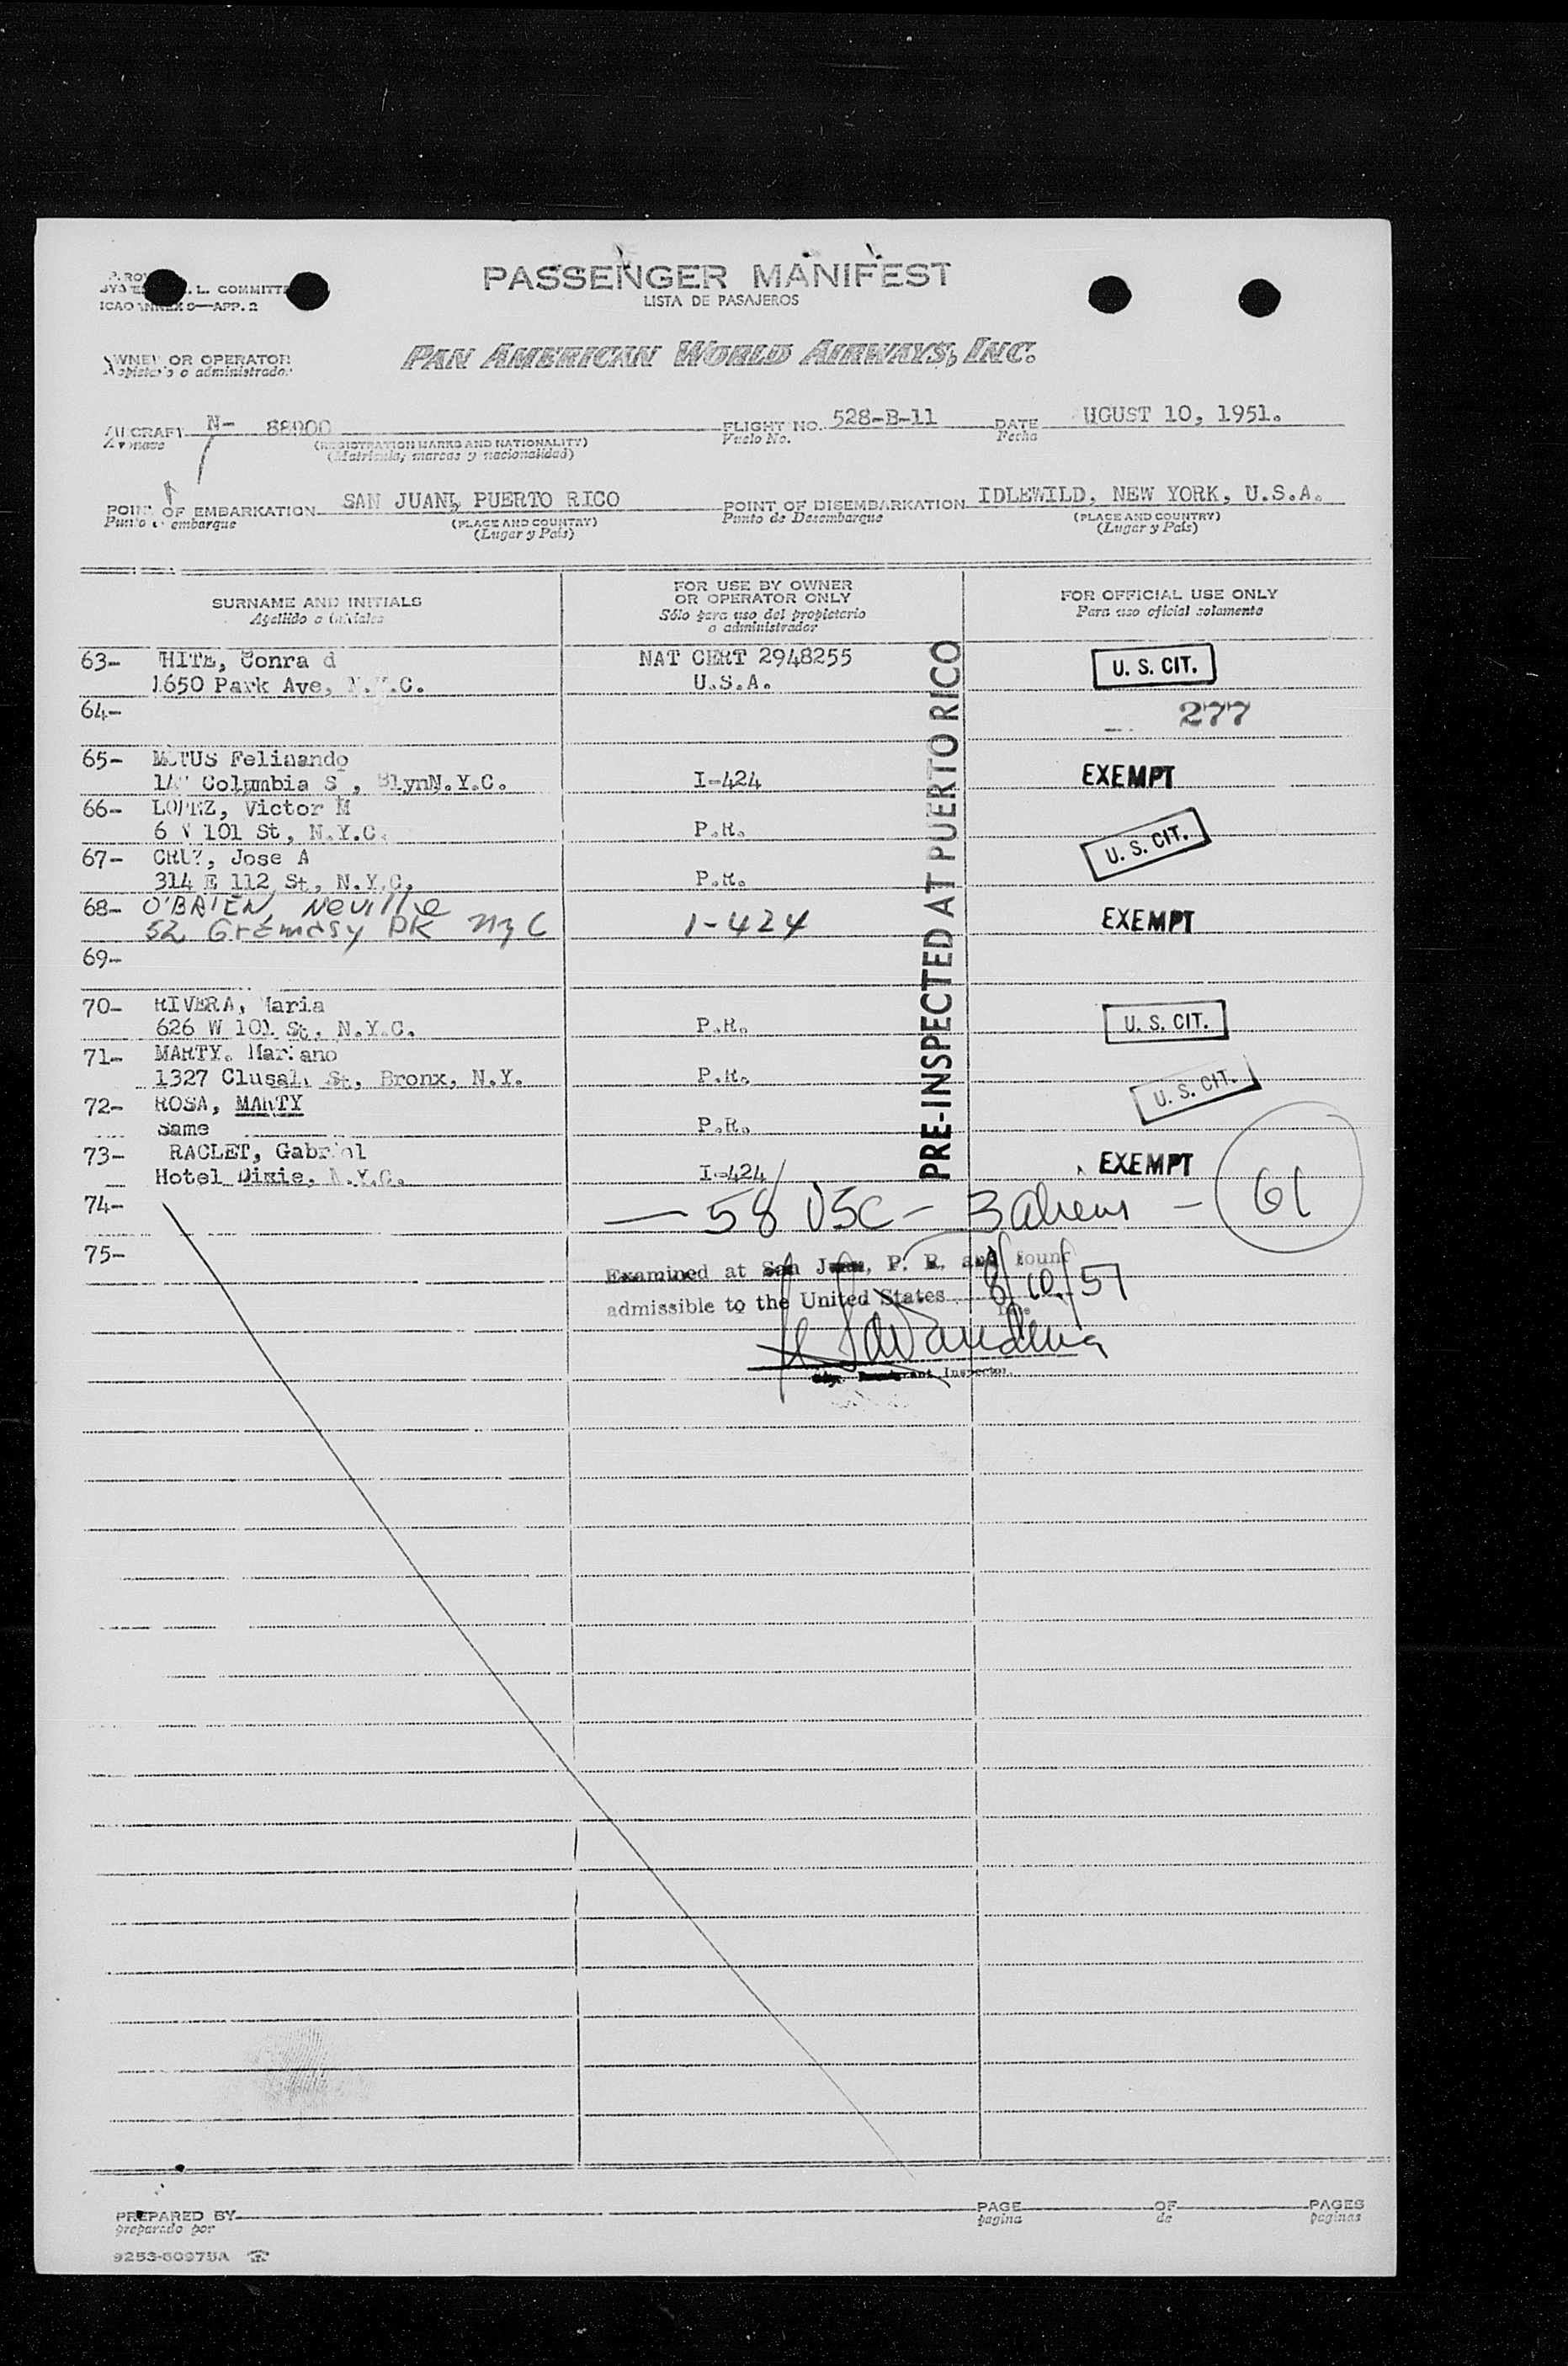 PASSENGER MANIFEST
LISTA DE PASAJEROS
L. COMMITT
ICAO ANNEX 9—APP. 2
PAN AMERICAN WORLD AIRWAYS, INC.
OWNER OR OPERATOR
o administrador
AIRCRAFT N- 88900 FLIGHT NO. 528-B-11 DATE UGUST 10, 1951.
(REGISTRATION MARKS AND NATIONALITY) Vuelo No. Fecha
(Matrícula, marcas y nacionalidad)
POINT OF EMBARKATION SAN JUAN, PUERTO RICO POINT OF DISEMBARKATION IDLEWILD, NEW YORK, U.S.A.
Punto embarque (PLACE AND COUNTRY) Punto de Desembarque (PLACE AND COUNTRY)
(Lugar y País) (Lugar y País)
SURNAME AND INITIALS
Apellido e iniciales
FOR USE BY OWNER
OR OPERATOR ONLY
Sólo para uso del propietario
o administrador
FOR OFFICIAL USE ONLY
Para uso oficial solamente
63- HITE, Conra d NAT CERT 2948255 U. S. CIT.
1650 Park Ave, N.Y.C. U.S.A.
64- 277
65- Felinando
Columbia S , BlynN.Y.C. I-424 EXEMPT
66- LOPEZ, Victor M
6 W 101 St, N.Y.C. P.R. U. S. CIT.
67- CRUZ, Jose A
314 E 112 St, N.Y.C. P.R.
68- O'BRIEN, Neville
52 Gramasy PK NYC 1-424 EXEMPT
69-
70- RIVERA, Maria
626 W 101 St, N.Y.C. P.R. U. S. CIT.
71- MARTY. Mariano
1327 St, Bronx, N.Y. P.R. U. S. CIT.
72- ROSA, MARTY
Same P.R.
73- RACLET, Gabriel
Hotel Dixie, N.Y.C. I-424 EXEMPT
PRE-INSPECTED AT PUERTO RICO
74- — 58 USC - 3 aliens - 61
75-
Examined at San Juan, P. R. and found
admissible to the United States 8/10/51
Date
Inspector.
PREPARED BY PAGE OF PAGES
preparado por pagina de paginas
9253-60975A